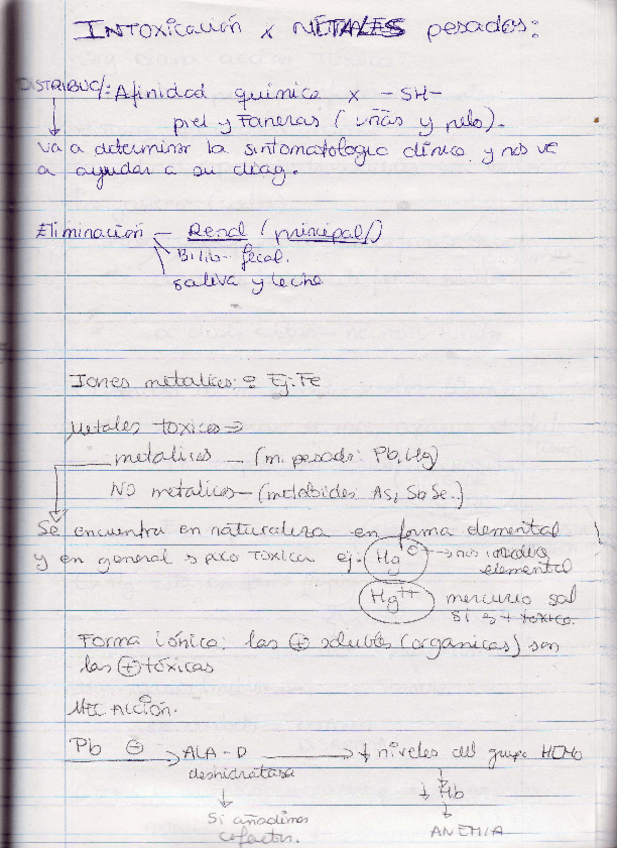 INTOXICACIÓN x METALES pesados:
DISTRIBUC/: Afinidad químico x -SH-
piel y Faneras (uñas y pelo).
va a determinar la sintomatologia clínica, y nos va
a ayudar a su diag.
Eliminación - Renal (principal)
Bilio-fecal.
saliva y leche
Iones metalicos: Ej: Fe
Metales toxicos ⇒
metalicos - (m. pesados: Pb, Hg)
NO metalicos - (metaloides: As, Sb Se..)
Se encuentra en naturaleza en forma elemental
y en general s poco toxica ej: Hg⁰ → elemental
Hg⁺⁺ mercurio sal
si s + toxico.
Forma iónico: las ⊕ solubles (organicas) son
las ⊕ tóxicas
Mec ACCIÓN.
Pb ⊖ → ALA-D → ↓ niveles del grupo HEMO
deshidratasa
↓ Hb
Si añadimos
cofactor.
ANEMIA